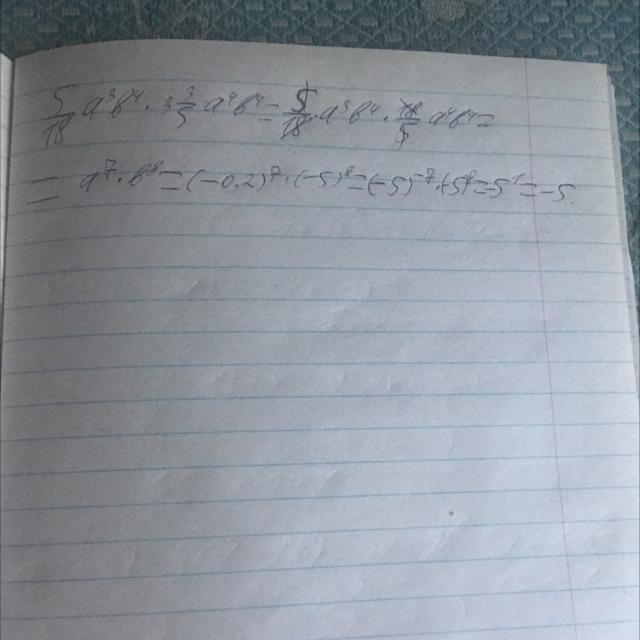 5/18 a³b⁴ · 3 3/5 a⁴b⁴ = 5/18 · a³b⁴ · 18/5 a⁴b⁴ =
= a⁷ · b⁸ = (-0,2)⁷ · (-5)⁸ = (-5)⁻⁷ · (-5)⁸ = 5¹ = -5.